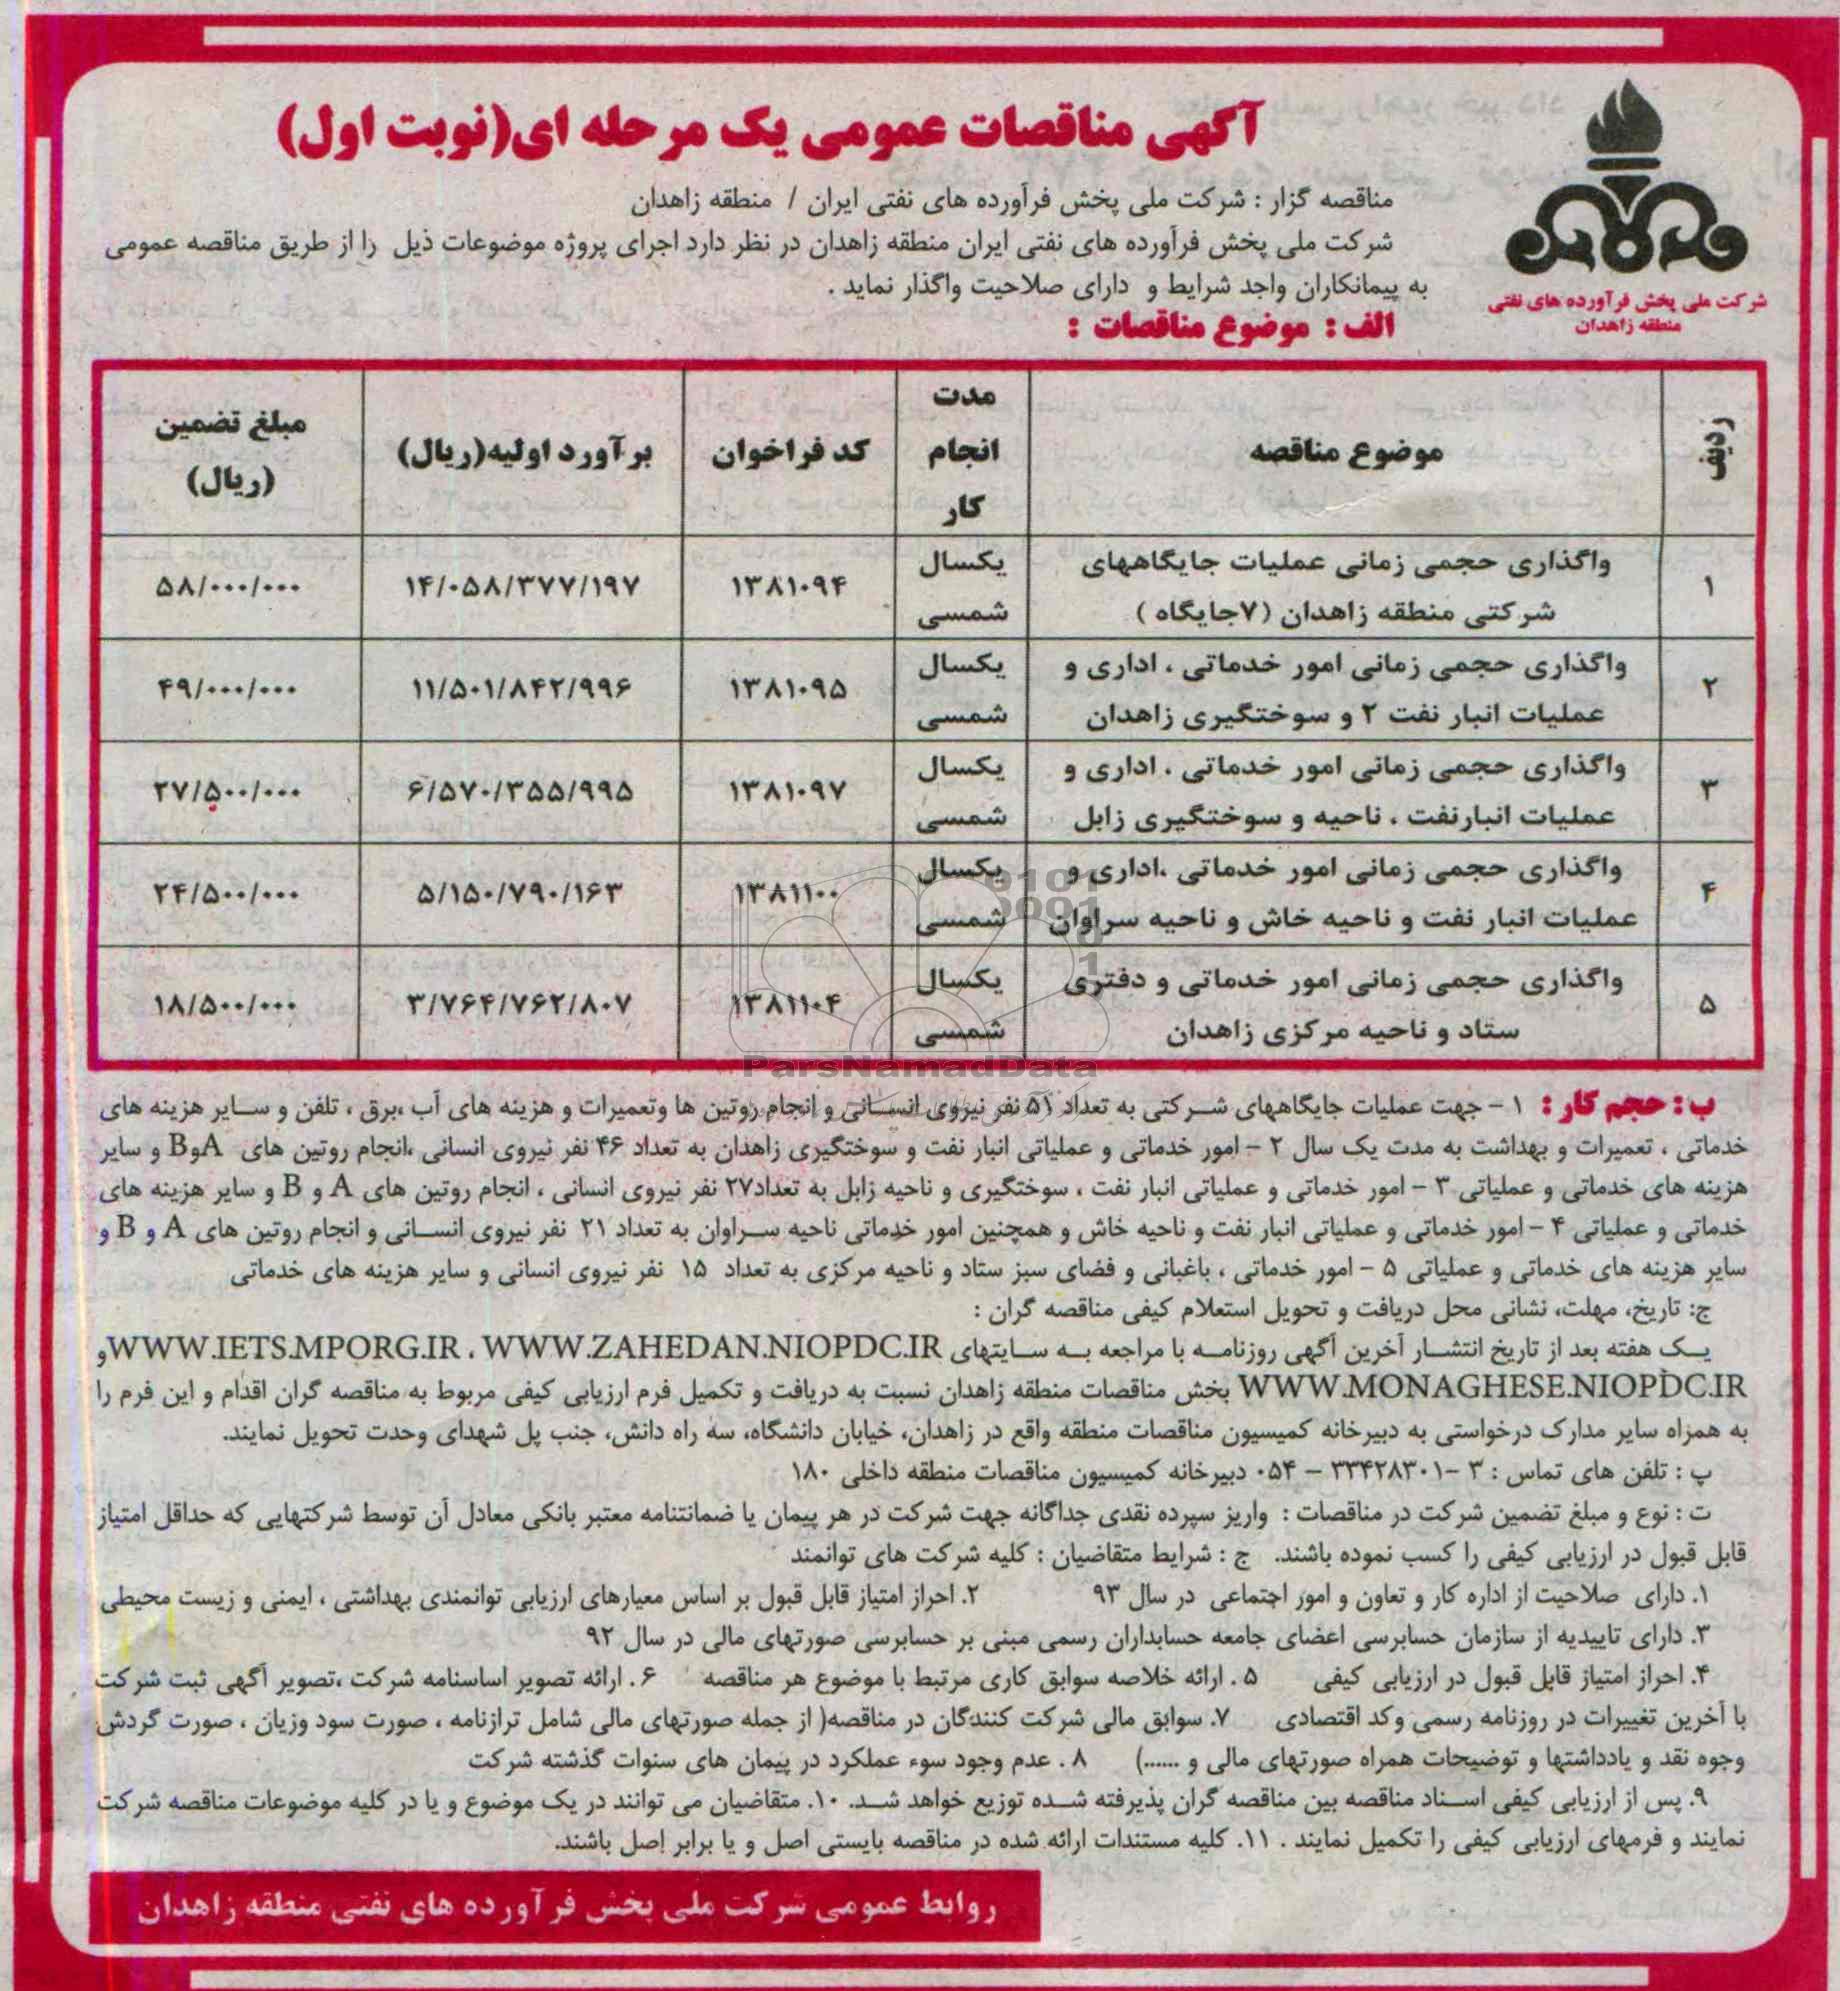 آگهی مناقصات عمومی یک مرحله ای(نوبت اول)
شرکت ملی پخش فرآورده های نفتی
منطقه زاهدان
مناقصه گزار : شرکت ملی پخش فرآورده های نفتی ایران / منطقه زاهدان
شرکت ملی پخش فرآورده های نفتی ایران منطقه زاهدان در نظر دارد اجرای پروژه موضوعات ذیل را از طریق مناقصه عمومی
به پیمانکاران واجد شرایط و دارای صلاحیت واگذار نماید .
الف : موضوع مناقصات :
ردیف موضوع مناقصه مدت انجام کار کد فراخوان برآورد اولیه(ریال) مبلغ تضمین (ریال)
۱ واگذاری حجمی زمانی عملیات جایگاههای شرکتی منطقه زاهدان (۷جایگاه ) یکسال شمسی ۱۳۸۱۰۹۴ ۱۴/۰۵۸/۳۷۷/۱۹۷ ۵۸/۰۰۰/۰۰۰
۲ واگذاری حجمی زمانی امور خدماتی ، اداری و عملیات انبار نفت ۲ و سوختگیری زاهدان یکسال شمسی ۱۳۸۱۰۹۵ ۱۱/۵۰۱/۸۴۲/۹۹۶ ۴۹/۰۰۰/۰۰۰
۳ واگذاری حجمی زمانی امور خدماتی ، اداری و عملیات انبارنفت ، ناحیه و سوختگیری زابل یکسال شمسی ۱۳۸۱۰۹۷ ۶/۵۷۰/۳۵۵/۹۹۵ ۲۷/۵۰۰/۰۰۰
۴ واگذاری حجمی زمانی امور خدماتی ،اداری و عملیات انبار نفت و ناحیه خاش و ناحیه سراوان یکسال شمسی ۱۳۸۱۱۰۰ ۵/۱۵۰/۷۹۰/۱۶۳ ۲۴/۵۰۰/۰۰۰
۵ واگذاری حجمی زمانی امور خدماتی و دفتری ستاد و ناحیه مرکزی زاهدان یکسال شمسی ۱۳۸۱۱۰۴ ۳/۷۶۴/۷۶۲/۸۰۷ ۱۸/۵۰۰/۰۰۰
ParsNamadData
ب : حجم کار : ۱ - جهت عملیات جایگاههای شرکتی به تعداد ۵۱ نفر نیروی انسانی و انجام روتین ها وتعمیرات و هزینه های آب ،برق ، تلفن و سایر هزینه های
خدماتی ، تعمیرات و بهداشت به مدت یک سال ۲ - امور خدماتی و عملیاتی انبار نفت و سوختگیری زاهدان به تعداد ۴۶ نفر نیروی انسانی ،انجام روتین های AوB و سایر
هزینه های خدماتی و عملیاتی ۳ - امور خدماتی و عملیاتی انبار نفت ، سوختگیری و ناحیه زابل به تعداد۲۷ نفر نیروی انسانی ، انجام روتین های A و B و سایر هزینه های
خدماتی و عملیاتی ۴ - امور خدماتی و عملیاتی انبار نفت و ناحیه خاش و همچنین امور خدماتی ناحیه سراوان به تعداد ۲۱ نفر نیروی انسانی و انجام روتین های A و B و
سایر هزینه های خدماتی و عملیاتی ۵ - امور خدماتی ، باغبانی و فضای سبز ستاد و ناحیه مرکزی به تعداد ۱۵ نفر نیروی انسانی و سایر هزینه های خدماتی
ج: تاریخ، مهلت، نشانی محل دریافت و تحویل استعلام کیفی مناقصه گران :
یک هفته بعد از تاریخ انتشار آخرین آگهی روزنامه با مراجعه به سایتهای WWW.IETS.MPORG.IR ، WWW.ZAHEDAN.NIOPDC.IR و
WWW.MONAGHESE.NIOPDC.IR بخش مناقصات منطقه زاهدان نسبت به دریافت و تکمیل فرم ارزیابی کیفی مربوط به مناقصه گران اقدام و این فرم را
به همراه سایر مدارک درخواستی به دبیرخانه کمیسیون مناقصات منطقه واقع در زاهدان، خیابان دانشگاه، سه راه دانش، جنب پل شهدای وحدت تحویل نمایند.
پ : تلفن های تماس : ۳ -۳۳۴۲۸۳۰۱ - ۰۵۴ دبیرخانه کمیسیون مناقصات منطقه داخلی ۱۸۰
ت : نوع و مبلغ تضمین شرکت در مناقصات : واریز سپرده نقدی جداگانه جهت شرکت در هر پیمان یا ضمانتنامه معتبر بانکی معادل آن توسط شرکتهایی که حداقل امتیاز
قابل قبول در ارزیابی کیفی را کسب نموده باشند. ج : شرایط متقاضیان : کلیه شرکت های توانمند
۱. دارای صلاحیت از اداره کار و تعاون و امور اجتماعی در سال ۹۳ ۲. احراز امتیاز قابل قبول بر اساس معیارهای ارزیابی توانمندی بهداشتی ، ایمنی و زیست محیطی
۳. دارای تاییدیه از سازمان حسابرسی اعضای جامعه حسابداران رسمی مبنی بر حسابرسی صورتهای مالی در سال ۹۲
۴. احراز امتیاز قابل قبول در ارزیابی کیفی ۵ . ارائه خلاصه سوابق کاری مرتبط با موضوع هر مناقصه ۶ . ارائه تصویر اساسنامه شرکت ،تصویر آگهی ثبت شرکت
با آخرین تغییرات در روزنامه رسمی وکد اقتصادی ۷. سوابق مالی شرکت کنندگان در مناقصه( از جمله صورتهای مالی شامل ترازنامه ، صورت سود وزیان ، صورت گردش
وجوه نقد و یادداشتها و توضیحات همراه صورتهای مالی و ......) ۸ . عدم وجود سوء عملکرد در پیمان های سنوات گذشته شرکت
۹. پس از ارزیابی کیفی اسناد مناقصه بین مناقصه گران پذیرفته شده توزیع خواهد شد. ۱۰. متقاضیان می توانند در یک موضوع و یا در کلیه موضوعات مناقصه شرکت
نمایند و فرمهای ارزیابی کیفی را تکمیل نمایند . ۱۱. کلیه مستندات ارائه شده در مناقصه بایستی اصل و یا برابر اصل باشند.
روابط عمومی شرکت ملی پخش فرآورده های نفتی منطقه زاهدان